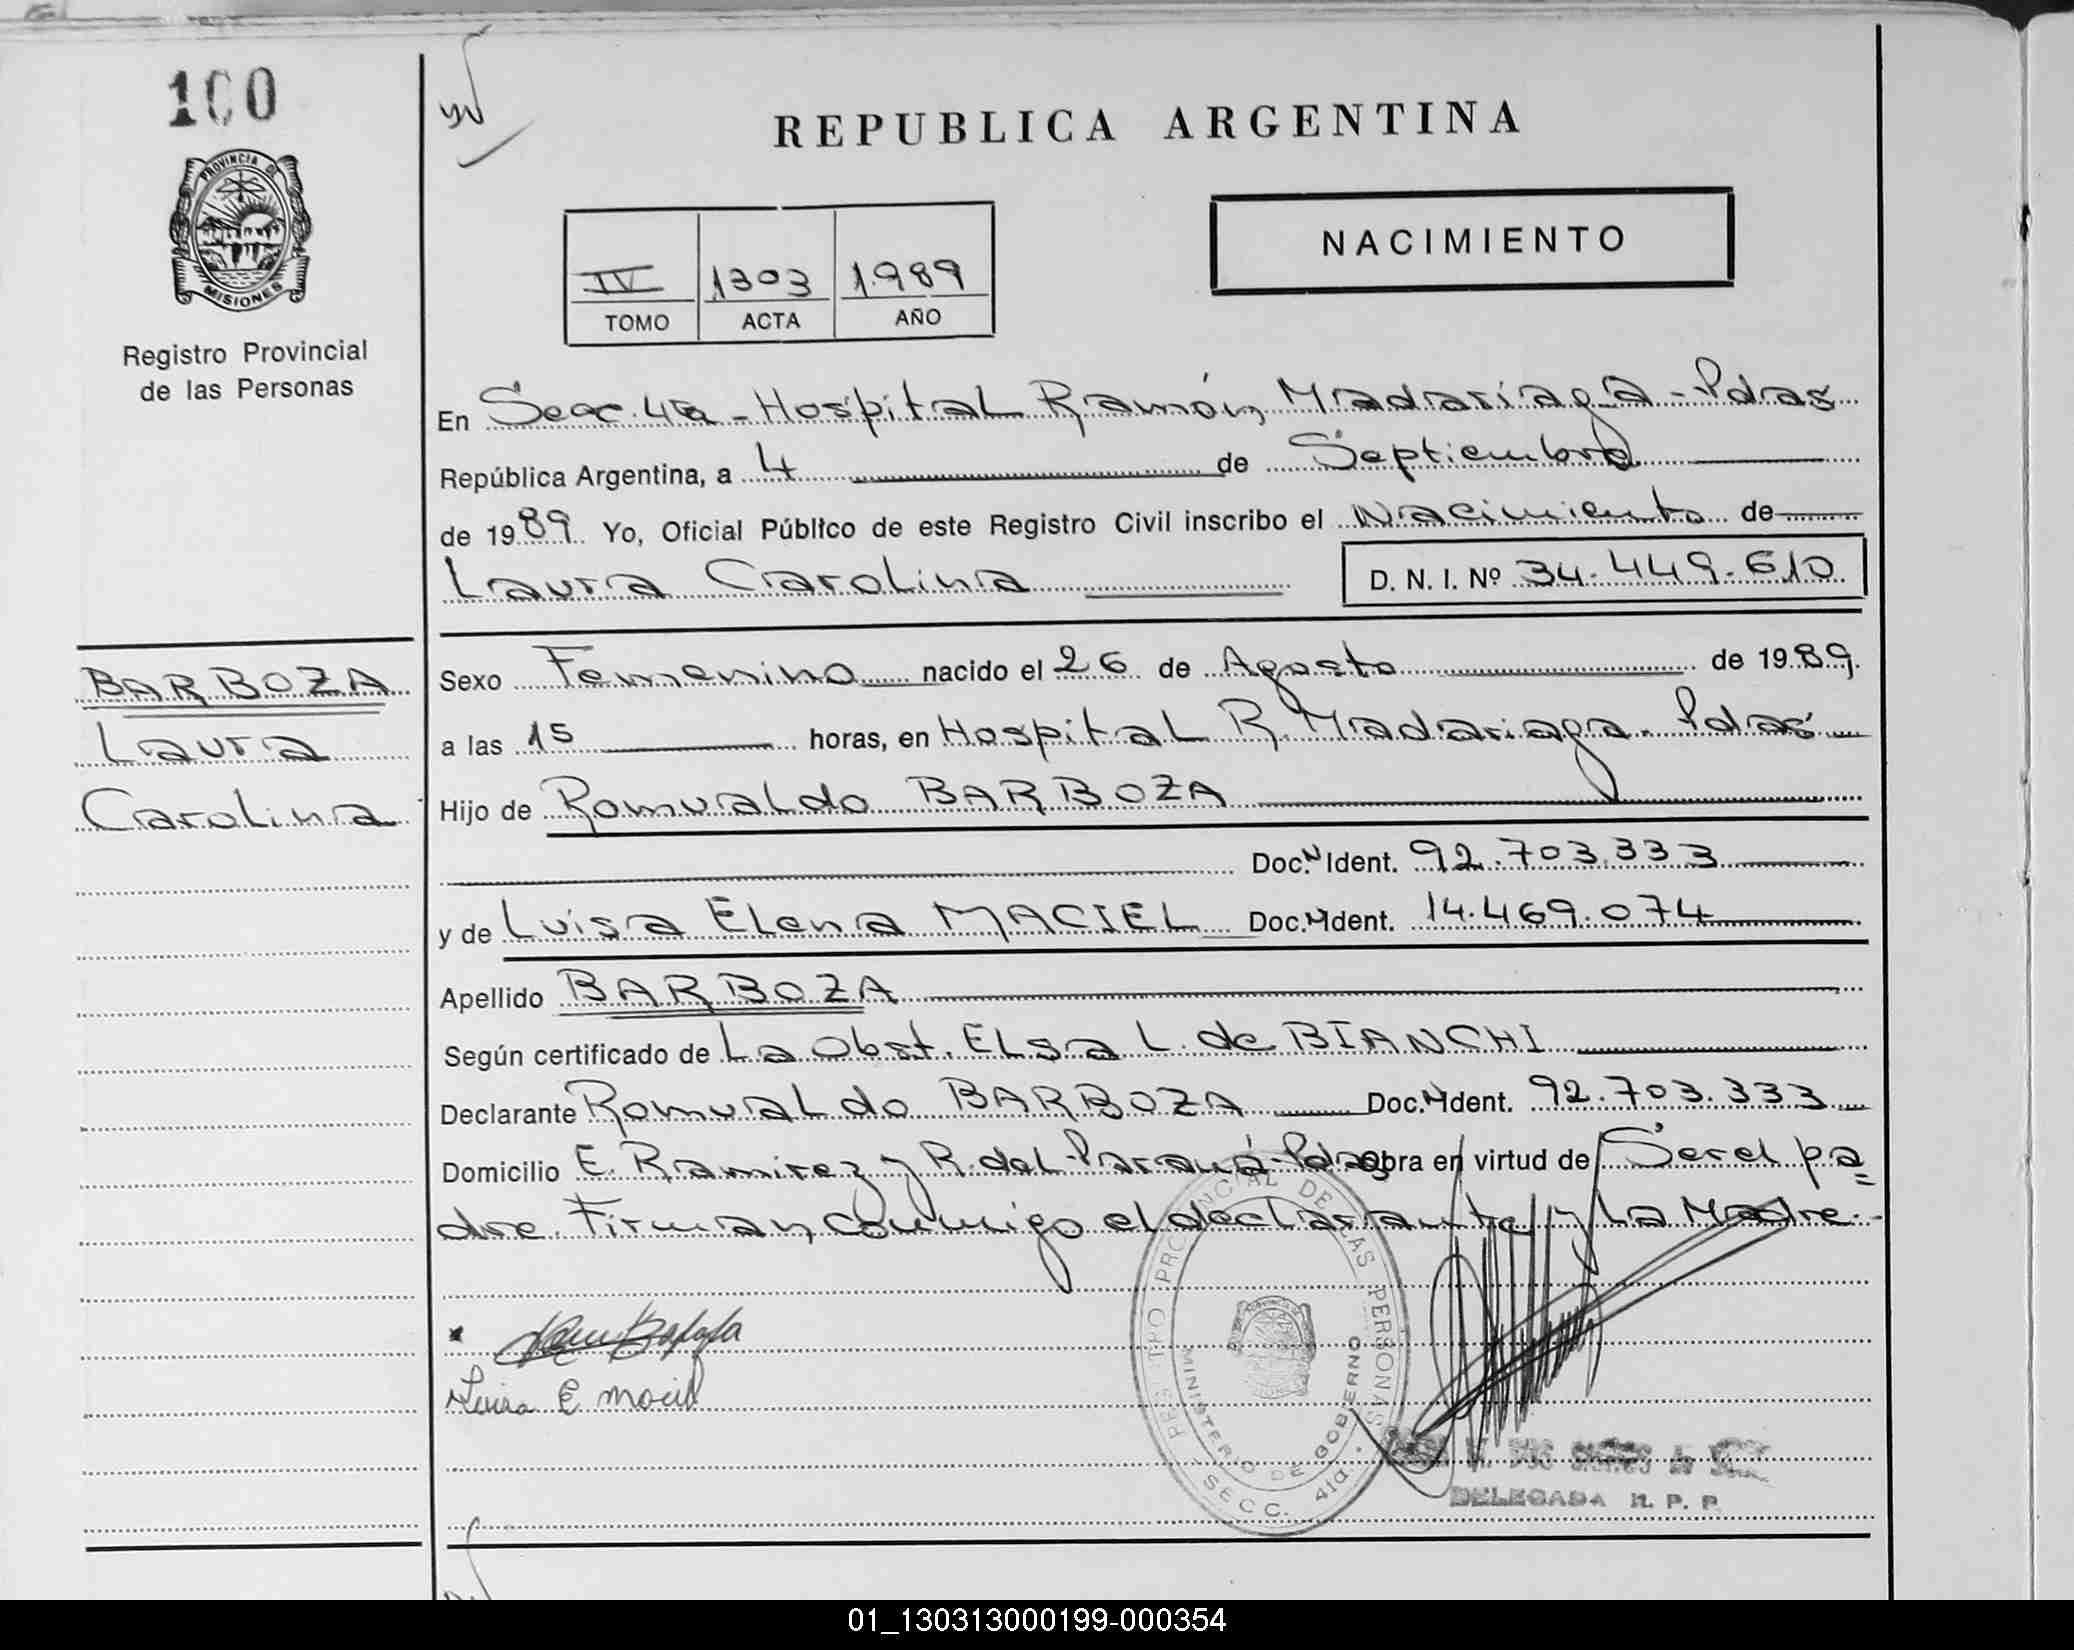 100
PROVINCIA DE
MISIONES
Registro Provincial
de las Personas
BARBOZA
Laura
Carolina
REPUBLICA ARGENTINA
NACIMIENTO
IV 1303 1989
TOMO ACTA AÑO
En Secc. 4ta - Hospital Ramón Madariaga - Pdas
República Argentina, a 4 de Septiembre
de 1989 Yo, Oficial Público de este Registro Civil inscribo el Nacimiento de
Laura Carolina D. N. I. Nº 34.449.610
Sexo Femenino nacido el 26 de Agosto de 1989.
a las 15 horas, en Hospital R. Madariaga - Pdas
Hijo de Romualdo BARBOZA
Doc. N Ident. 92.703.333
y de Luisa Elena MACIEL Doc. N Ident. 14.469.074
Apellido BARBOZA
Según certificado de La Obst. Elsa L. de BIANCHI
Declarante Romualdo BARBOZA Doc. N Ident. 92.703.333
Domicilio E. Ramirez y R. del Paraná - Pdas Obra en virtud de Ser el pa=
dre. Firman conmigo el declarante y La Madre.-
Luisa E Maciel
REGISTRO PROVINCIAL DE LAS PERSONAS
MINISTERIO DE GOBIERNO
SECC. 4ta.
DELEGADA R. P. P.
01_130313000199-000354